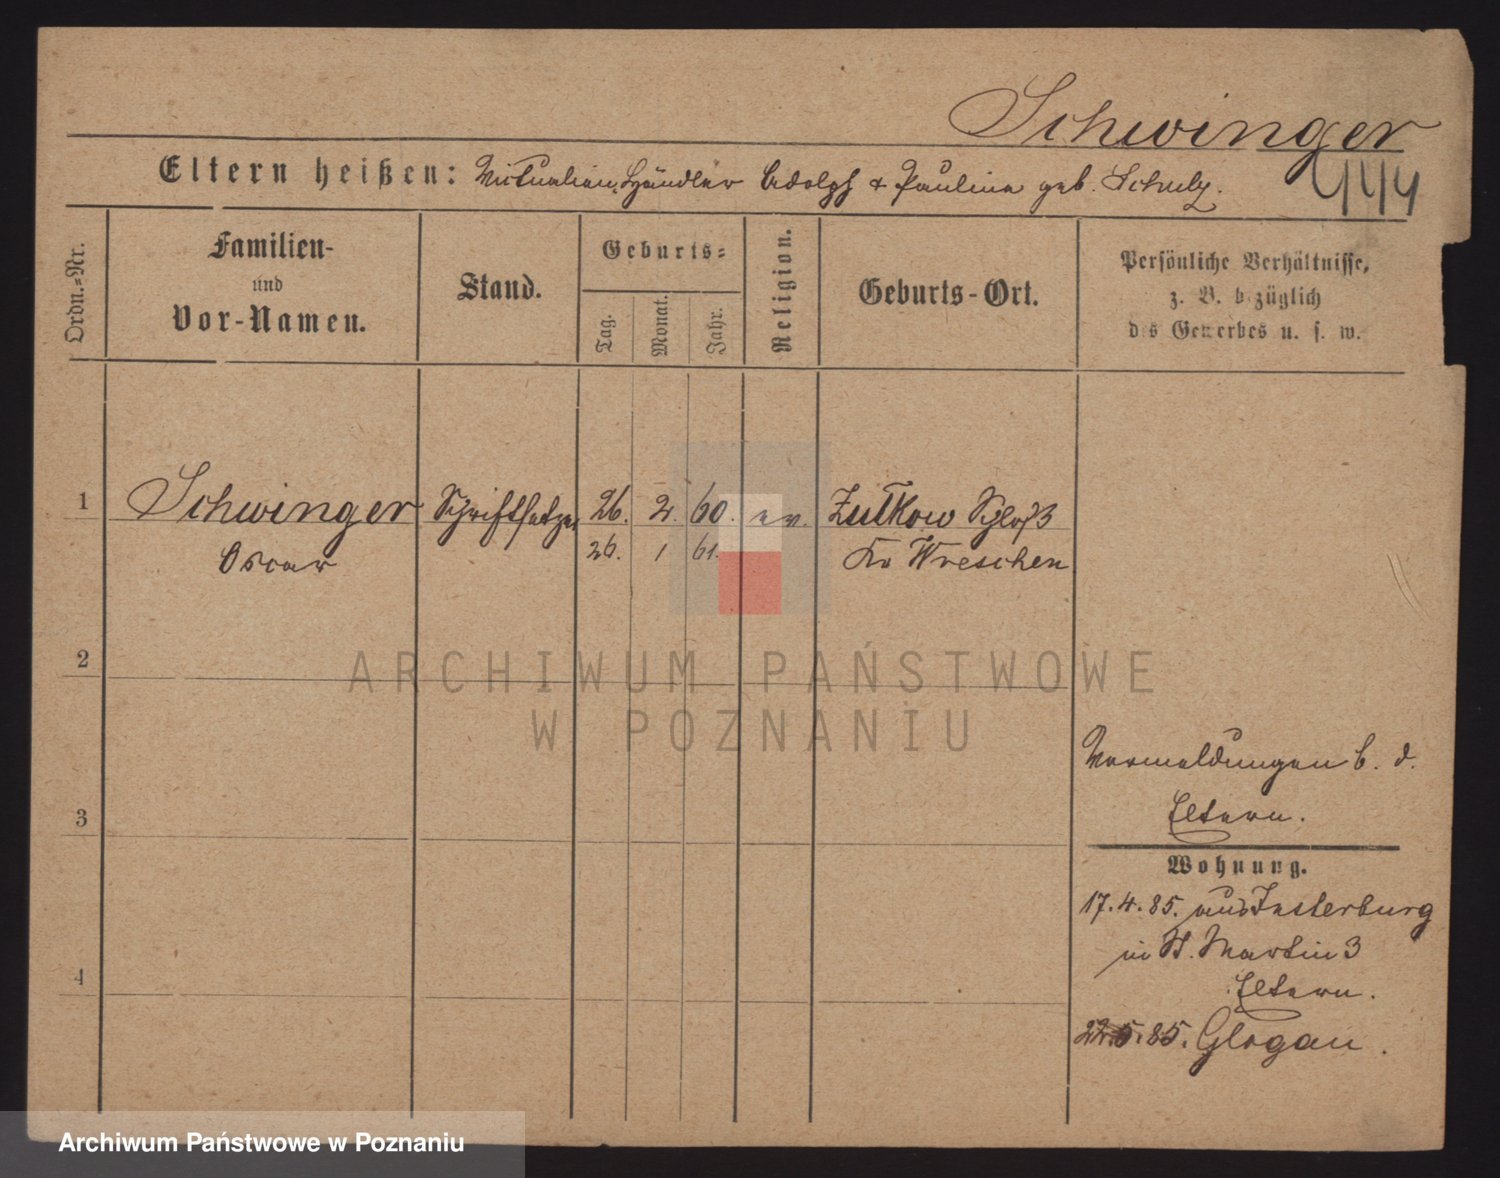 Schwinger
444
Eltern heißen: Victualien Händler Adolph & Pauline geb. Schulz.
Ordn.=Nr.
Familien-
und
Vor-Namen.
Stand.
Geburts=
Tag.
Monat.
Jahr.
Religion.
Geburts-Ort.
Persönliche Verhältnisse,
z. B. bezüglich
des Gewerbes u. s. w.
1 Schwinger Schriftsetzer 26. 2. 60. ev. Zulkow Schloß
Oscar 26. 1 61. Kr Wreschen
2
3
4
Vormeldungen b. d.
Eltern.
Wohnung.
17.4.85. aus Insterburg
in St. Martin 3
Eltern.
22.5.85. Glogau.
ARCHIWUM PAŃSTWOWE
W POZNANIU
Archiwum Państwowe w Poznaniu